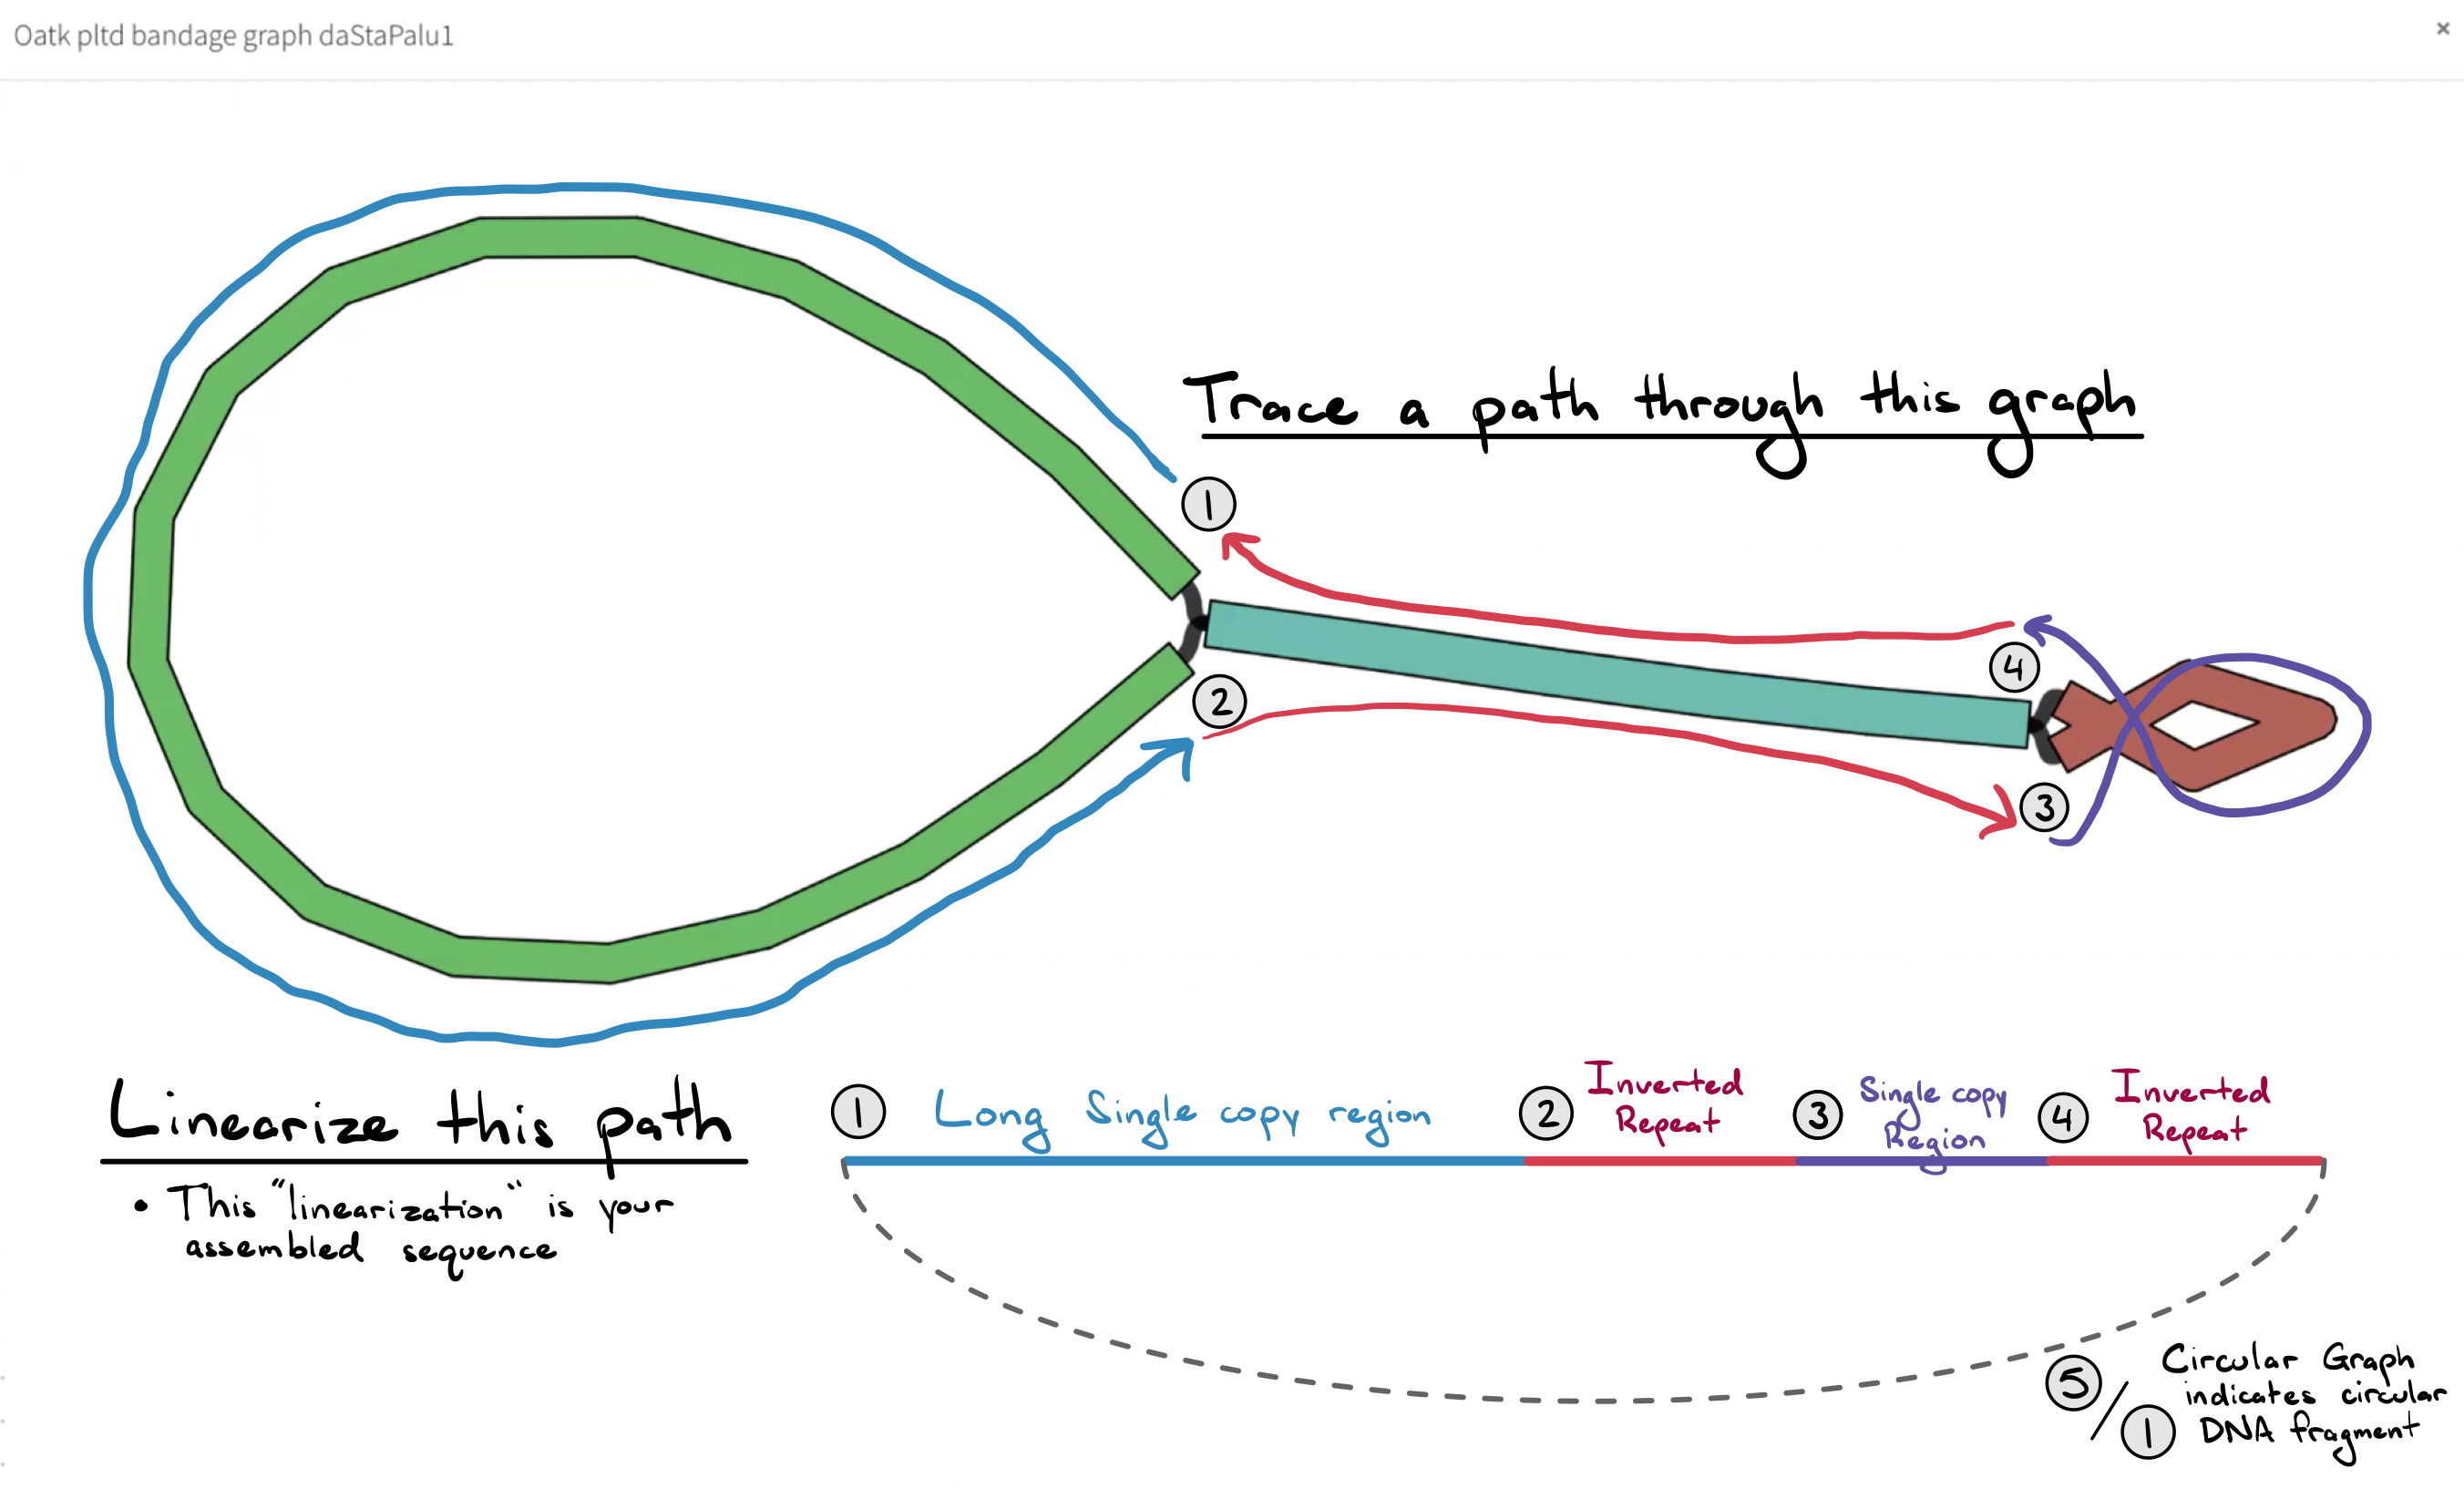 Oatk pltd bandage graph daStaPalu1
×
Trace a path through this graph
1
2
4
3
Linearize this path
• This "linearization" is your
assembled sequence
1 Long Single copy region
2 Inverted
Repeat
3 Single copy
Region
4 Inverted
Repeat
5 / 1 Circular Graph
indicates circular
DNA fragment